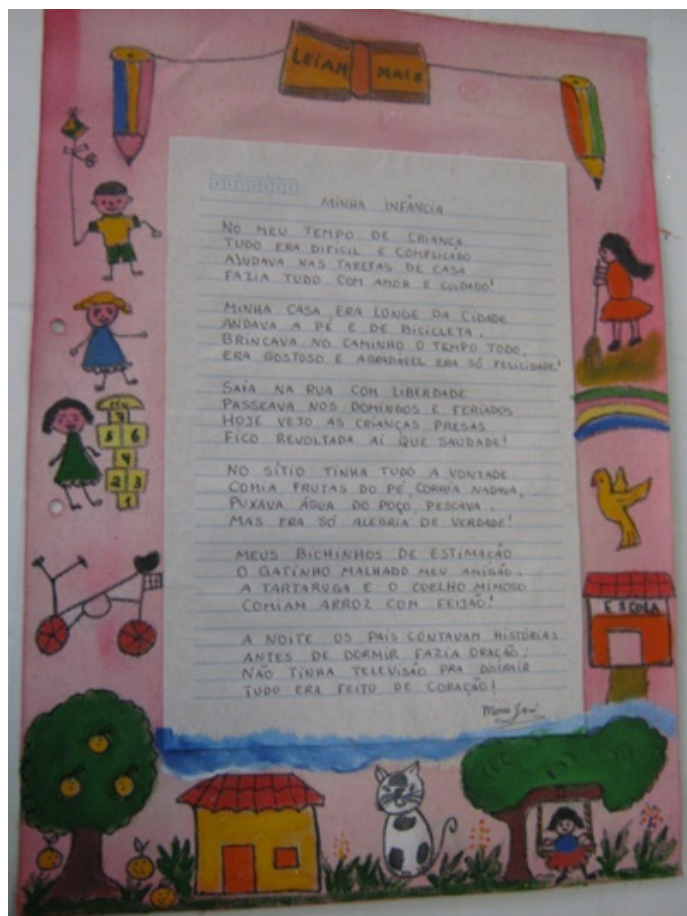 LEIAM MAIS
MINHA INFÂNCIA
NO MEU TEMPO DE CRIANÇA
TUDO ERA DIFÍCIL E COMPLICADO
AJUDAVA NAS TAREFAS DE CASA
FAZIA TUDO COM AMOR E CUIDADO!
MINHA CASA ERA LONGE DA CIDADE
ANDAVA A PÉ E DE BICICLETA.
BRINCAVA NO CAMINHO O TEMPO TODO,
ERA GOSTOSO E AGRADÁVEL ERA SÓ FELICIDADE!
SAÍA NA RUA COM LIBERDADE
PASSEAVA NOS DOMINGOS E FERIADOS
HOJE VEJO AS CRIANÇAS PRESAS
FICO REVOLTADA AÍ QUE SAUDADE!
NO SÍTIO TINHA TUDO A VONTADE
COMIA FRUTAS DO PÉ, CORRIA NADAVA,
PUXAVA ÁGUA DO POÇO, PESCAVA.
MAS ERA SÓ ALEGRIA DE VERDADE!
MEUS BICHINHOS DE ESTIMAÇÃO
O GATINHO MALHADO MEU AMIGÃO.
A TARTARUGA E O COELHO MIMOSO
COMIAM ARROZ COM FEIJÃO!
A NOITE OS PAIS CONTAVAM HISTÓRIAS
ANTES DE DORMIR FAZIA ORAÇÃO;
NÃO TINHA TELEVISÃO PRA DISTRAIR
TUDO ERA FEITO DE CORAÇÃO!
CÉU
7
5 6
4
2 3
1
ESCOLA